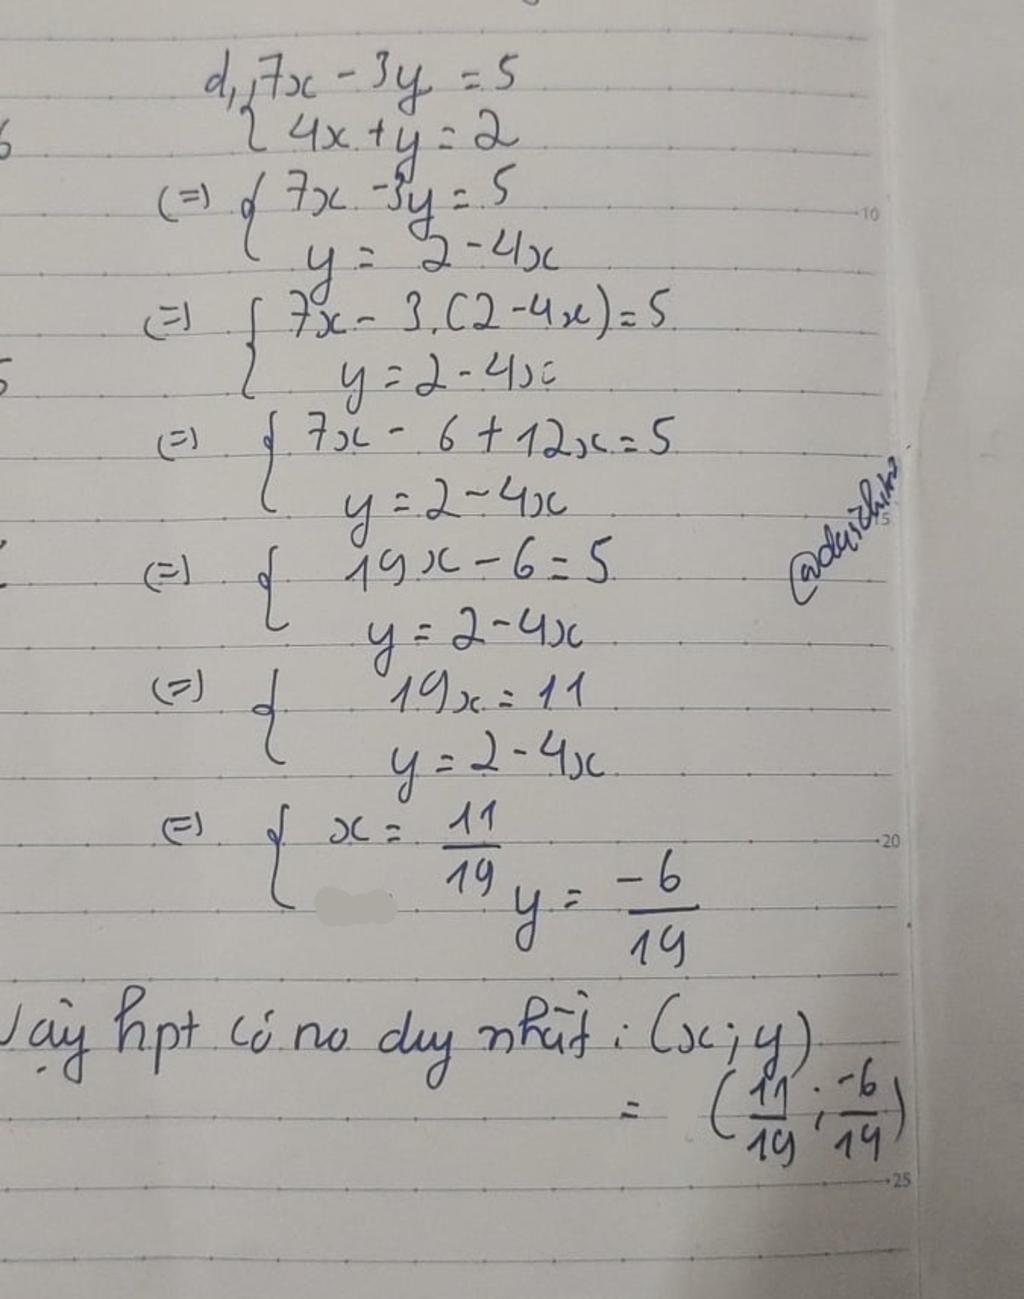 d, { 7x - 3y = 5
4x + y = 2
(=) { 7x - 3y = 5
y = 2 - 4x
(=) { 7x - 3.(2 - 4x) = 5
y = 2 - 4x
(=) { 7x - 6 + 12x = 5
y = 2 - 4x
(=) { 19x - 6 = 5
y = 2 - 4x
(=) { 19x = 11
y = 2 - 4x
(=) { x = 11/19
y = -6/19
Vậy hpt có no duy nhất : (x; y)
= (11/19 ; -6/19)
10
20
25